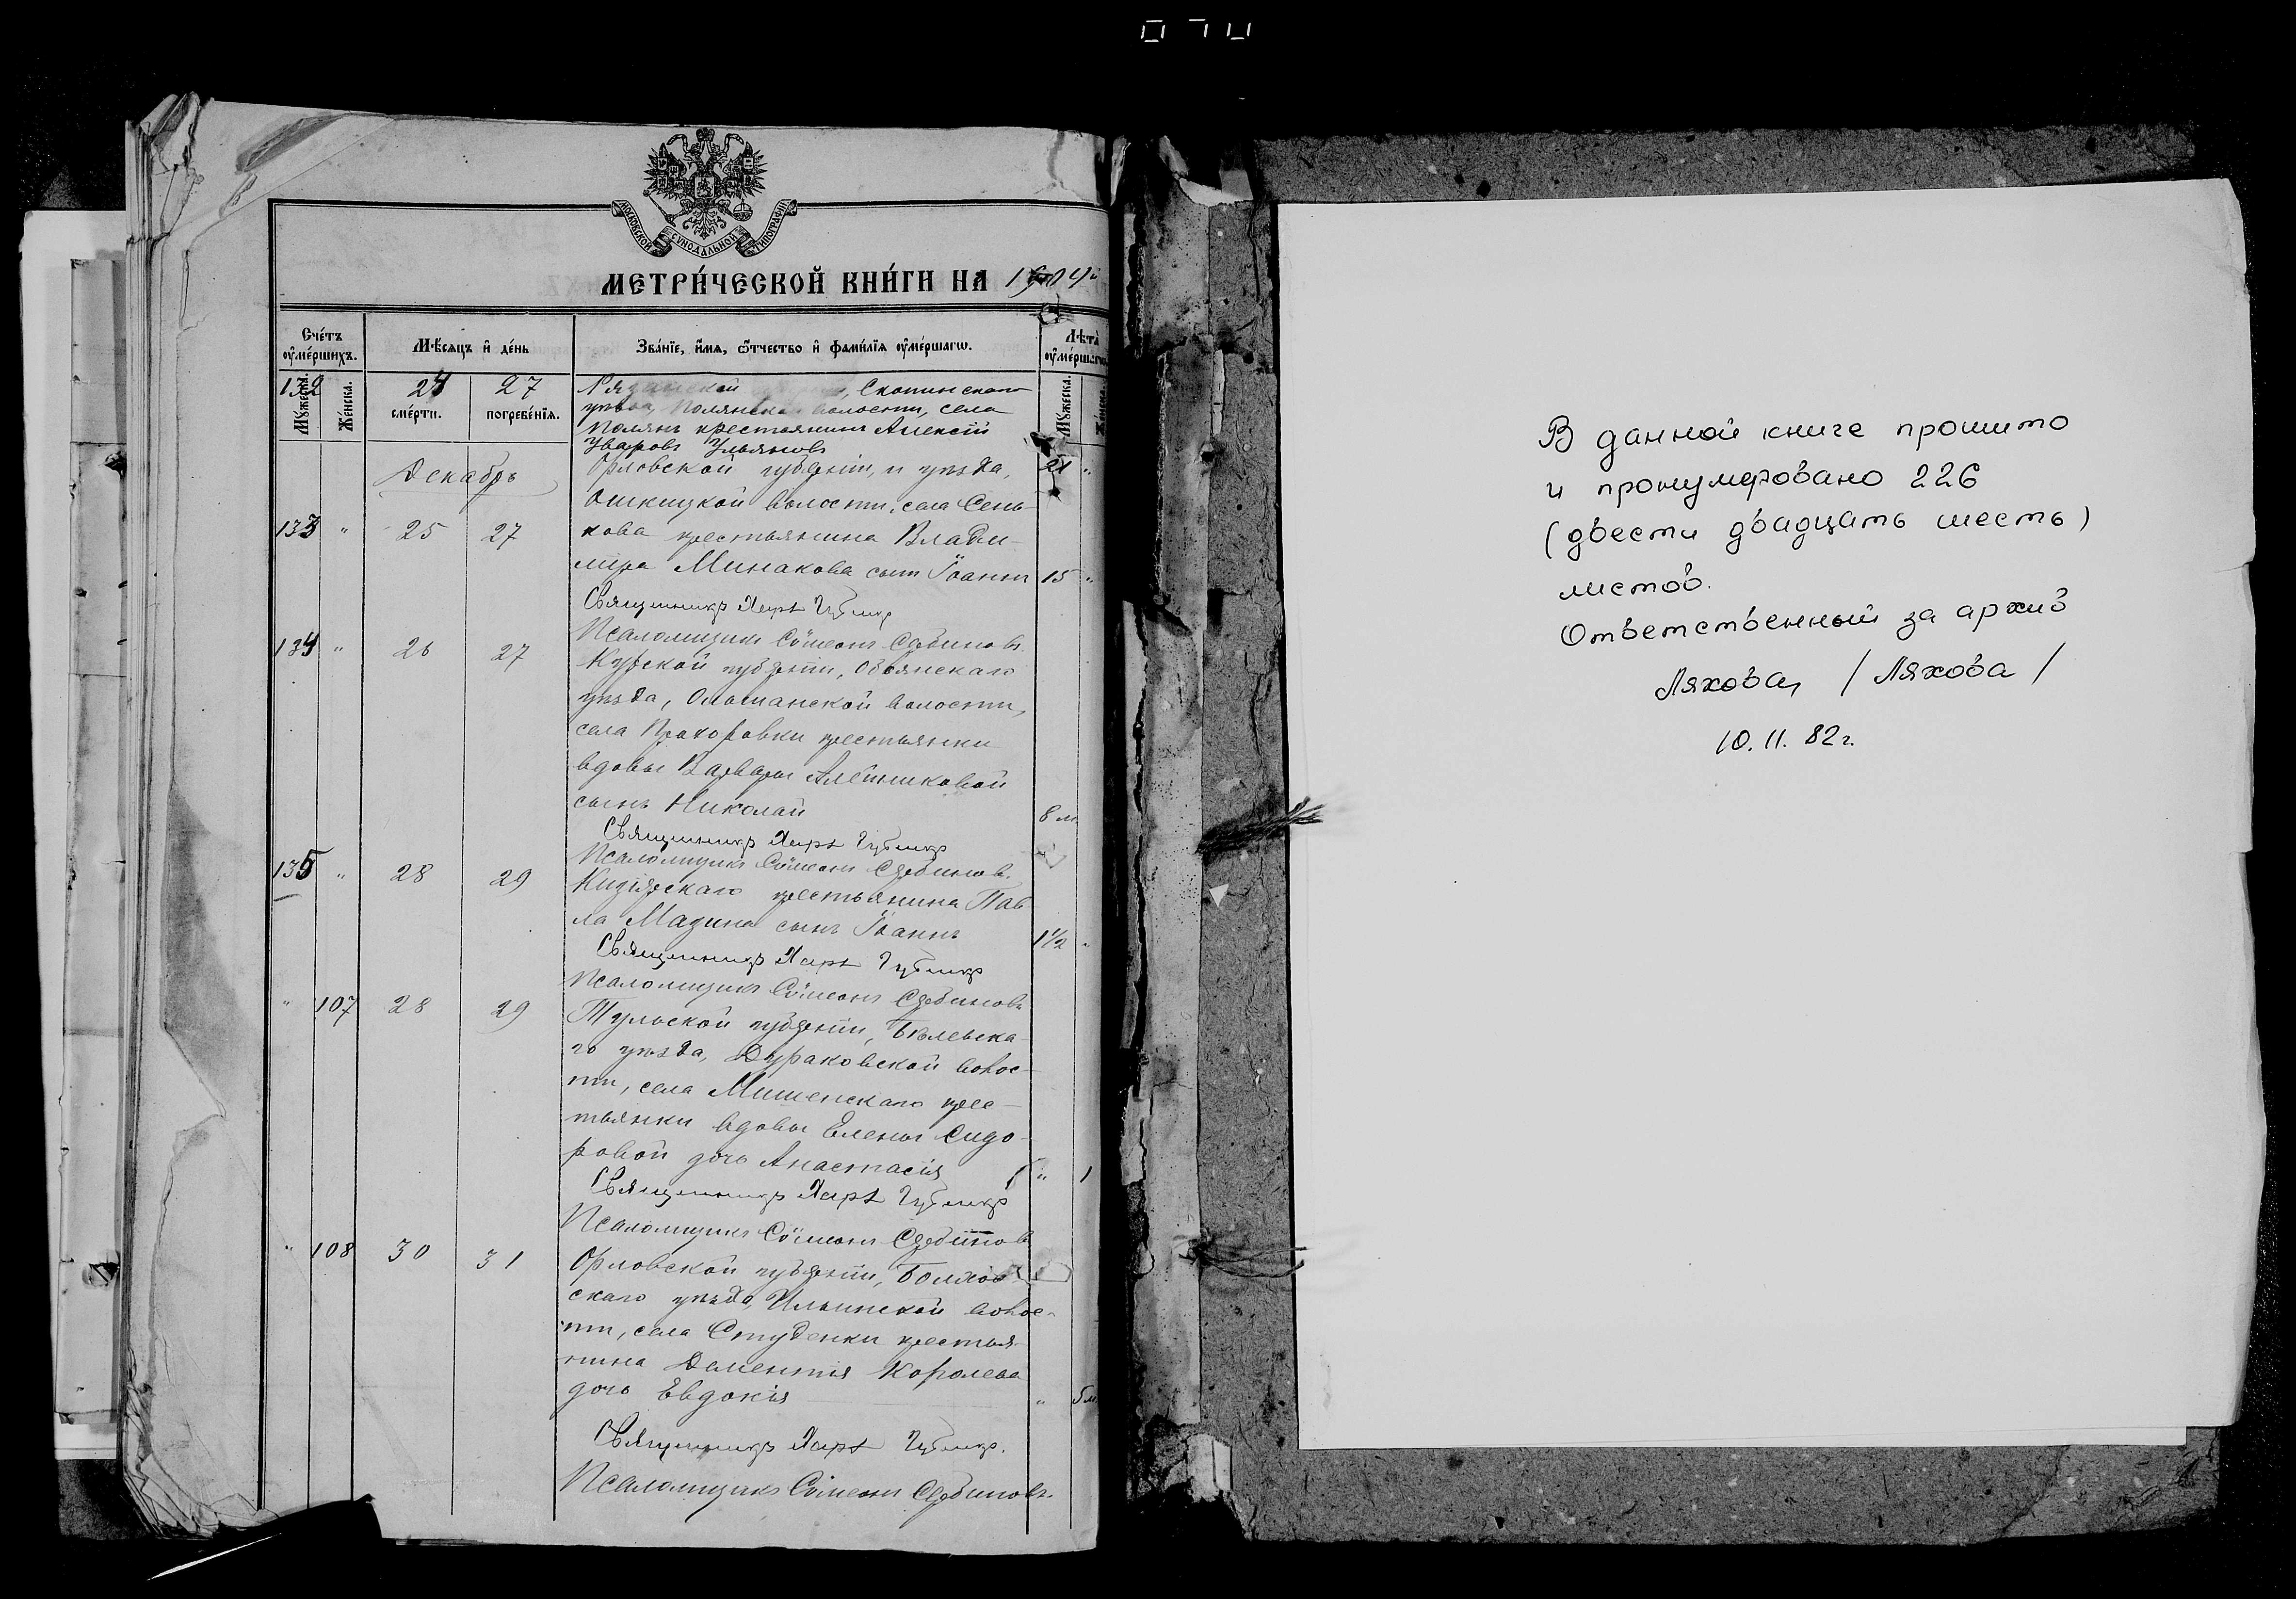 МОСКОВСКОЙ СѴНОДАЛЬНОЙ ТИПОГРАФІИ
МЕТРИ́ЧЕСКОЙ КНИ́ГИ НА 1904й
Сче́тъ оумершихъ.
Мѣ́сяцъ и де́нь
Зва́ніе, и́мя, ѻ҆́тчество и фами́лія оуме́ршагѡ.
Лѣта̀ оуме́ршагѡ
Мꙋжеска. Же́нска.
сме́рти. погребе́нія.
Мꙋжеска.
132 24 27
Рязанской Скопинскаго
уѣзда, Полянской волости, села
Полянъ крестьянинъ Алексій
Уваровъ Ульяновъ 21 "
Декабрь
133 " 25 27
Орловской губерніи, и уѣзда,
волости, села Сень-
кова крестьянина Влади-
мира Минакова сынъ Іоаннъ 15 "
Священникъ
Псаломщикъ Сѵмеонъ
134 " 26 27
Курской губерніи, Обоянскаго
уѣзда, Ольшанской волости,
села Прохоровки крестьянки
вдовы Варвары Алейниковой
сынъ Николай 8 м.
Священникъ
Псаломщикъ Сѵмеонъ
135 " 28 29
крестьянина Пав
ла Мазина сынъ Іоаннъ 1½ "
Священникъ
Псаломщикъ Сѵмеонъ
" 107 28 29
Тульской губерніи, Бѣлевска-
го уѣзда, Дураковской волос-
ти, села Мишенскаго крес-
тьянки вдовы Елены Сидо-
ровой дочь Анастасія " 1
Священникъ
Псаломщикъ Сѵмеонъ
" 108 30 31
Орловской губерніи, Болхов-
скаго уѣзда, Ильинской волос-
ти, села Студенки крестья-
нина Дементія Королева
дочь Евдокія " 5 м
Священникъ
Псаломщикъ Сѵмеонъ
В данной книге прошито
и пронумеровано 226
(двести двадцать шесть)
листов.
Ответственный за архив
Ляхова / Ляхова /
10.11.82г.